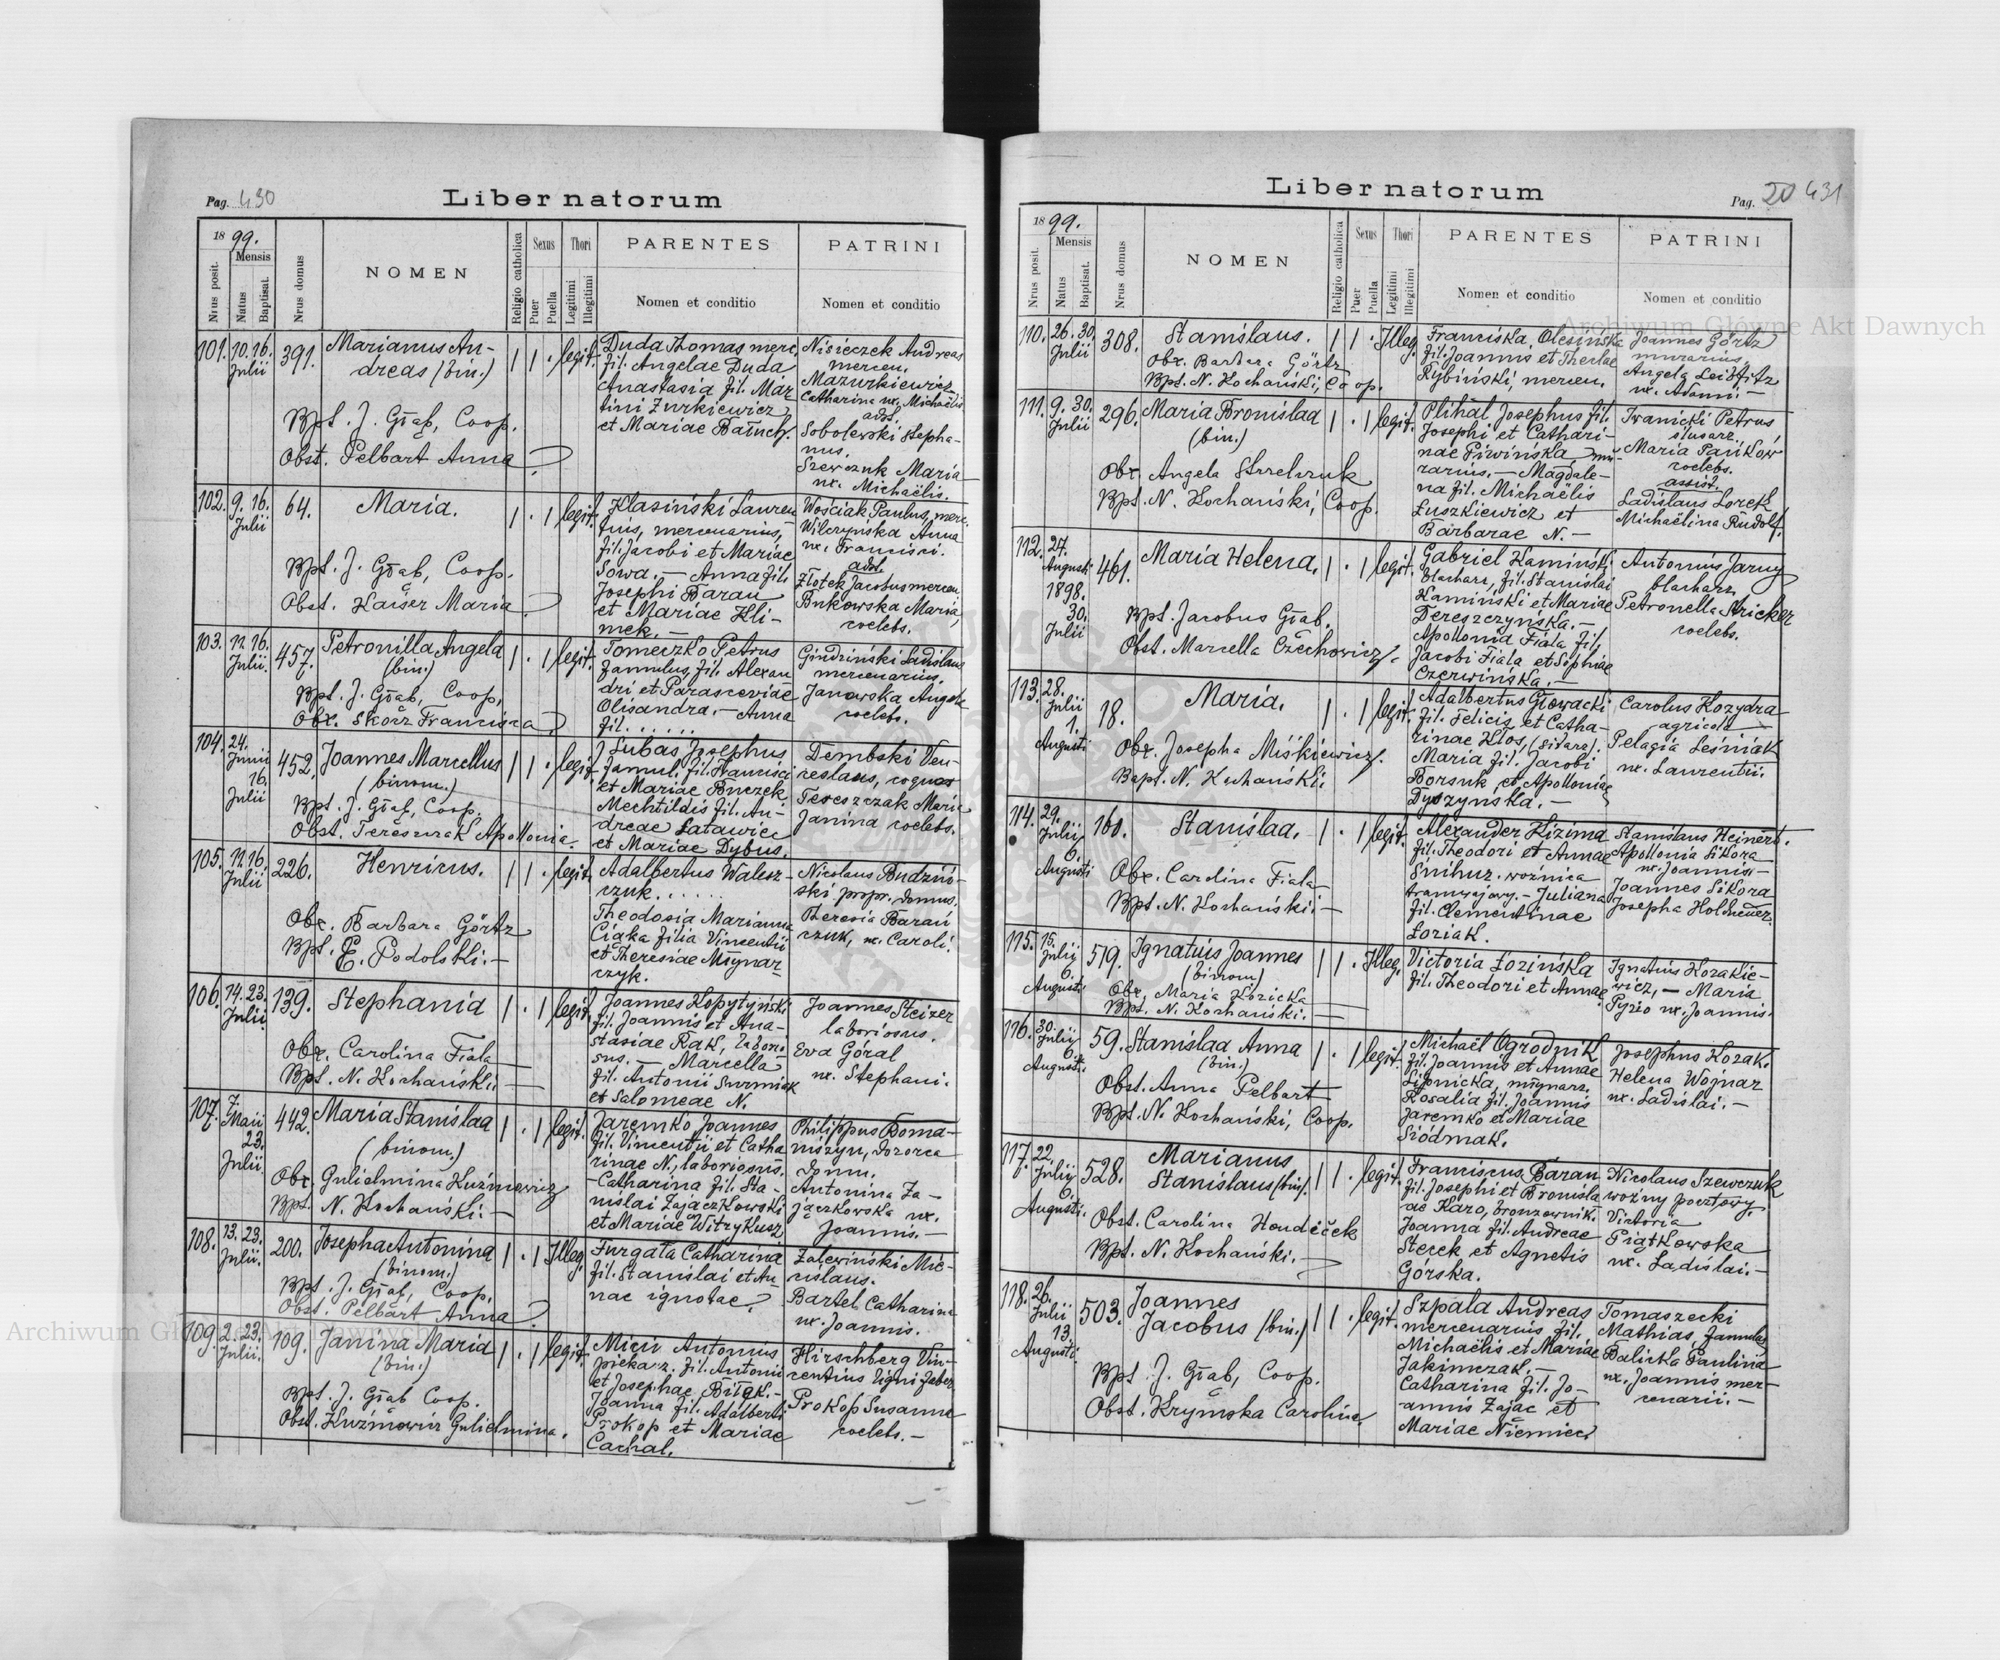 Pag. 430
Liber natorum
1899.
Mensis
Nrus posit.
Natus
Baptisat.
Nrus domus
NOMEN
Religio catholica
Sexus
Puer
Puella
Thori
Legitimi
Illegitimi
PARENTES
Nomen et conditio
PATRINI
Nomen et conditio
101. 10. 16. Julii 391.
Marianus An-
dreas (bin.)
Bpt. J. Grąb, Coop.
Obst. Pelbart Anna
legit.
Duda Thomas merc.
fil. Angelae Duda
Anastasia fil. Mar-
tini Żurkiewicz
et Mariae
Nisieczek Andreas
mercen.
Mazurkiewicz
Catharina ux. Michaëlis
adst.
Sobolewski Stepha-
nus.
Szewczuk Maria
ux. Michaëlis.
102. 9. 16. Julii 64.
Maria.
Bpt. J. Grąb, Coop.
Obst. Kaiser Maria
legit.
Klasiński Lauren-
tius, mercenarius,
fil. Jacobi et Mariae
Sowa. — Anna fil.
Josephi Baran
et Mariae Kli-
mek. —
Wościak Paulus, merc.
Wilczyńska Anna
ux. Francisci.
adst.
Złotek Jacobus mercen.
Bukowska Maria,
coelebs.
103. 11. 16. Julii. 457.
Petronilla Angela
(bin.)
Bpt. J. Grąb, Coop.
Obx. Skórz Francisca
legit.
Tomeczko Petrus
famulus, fil. Alexan-
dri et Parasceviae
Olisandra. — Anna
fil. . . . . .
Gindziński Ladislaus
mercenarius.
Janowska Angela
coelebs.
104. 24. Junii 16. Julii 452.
Joannes Marcellus
(binom.)
Bpt. J. Grąb, Coop.
Obst. Tereszczak Apollonia.
legit.
Lubas Josephus
famul. fil. Francisci
et Mariae Buczek
Mechtildis fil. An-
dreae Latawiec
et Mariae Dybus.
Dembski Ven-
ceslaus, coquus
Tereszczak Maria
Janina coelebs.
105. 11. 16. Julii 226.
Henricus.
Obx. Barbara Görtz
Bpt. E. Podolski. —
legit.
Adalbertus Walesz-
czuk. . . . . .
Theodosia Marianna
Ciąka filia Vincentii
et Theresiae Młynar-
czyk.
Nicolaus Budziń-
ski propr. domus.
Theresia Barań-
czuk, ux. Caroli.
106. 14. 23. Julii 139.
Stephania
Obx. Carolina Fiala
Bpt. N. Kochański. —
legit.
Joannes Kopytyński
fil. Joannis et Ana-
stasiae Rak, laborio-
sus. — Marcella
fil. Antonii Surmiak
et Salomeae N.
Joannes Steizer
laboriosus.
Eva Góral
ux. Stephani.
107. 7. Maii 23. Julii 442.
Maria Stanislaa
(binom.)
Obx. Gulielmina Kuźniewicz
Bpt. N. Kochański. —
legit.
Jaremko Joannes
fil. Vincentii et Catha-
rinae N., laboriosus.
— Catharina fil. Sta-
nislai Zajączkowski
et Mariae Witrykusz
Philippus Roma-
niszyn, dozorca
domu.
Antonina Za-
jączkowska ux.
Joannis. —
108. 13. 23. Julii. 200.
Josepha Antonina
(binom.)
Bpt. J. Grąb, Coop.
Obst. Pelbart Anna
Illeg.
Furgała Catharina
fil. Stanislai et An-
nae ignotae.
Zalewiński Mie-
cislaus.
Bartel Catharina
ux. Joannis.
109. 2. 23. Julii. 109.
Janina Maria
(bin.)
Bpt. J. Grąb Coop.
Obst. Kuźniewicz Gulielmina.
legit.
Micu Antonius
piekarz. fil. Antonii
et Josephae Bilek. —
Joanna fil. Adalberti
Prokop et Mariae
Cachal.
Hirschberg Vin-
centius ligni faber
Prokop Susanna
coelebs. —
Liber natorum
Pag. 20 431
1899.
Mensis
Nrus posit.
Natus
Baptisat.
Nrus domus
NOMEN
Religio catholica
Sexus
Puer
Puella
Thori
Legitimi
Illegitimi
PARENTES
Nomen et conditio
PATRINI
Nomen et conditio
110. 26. 30. Julii 308.
Stanislaus.
Obx. Barbara Görtz
Bpt. N. Kochański, Coop.
Illeg.
Franciska Olesińska
fil. Joannis et Theclae
Rybiński, mercen.
Joannes Görtz
murarius.
Angela
ux. Adami. —
111. 9. 30. Julii 296.
Maria Bronislaa
(bin.)
Obx. Angela Strzelczuk
Bpt. N. Kochański, Coop.
legit.
Plihal Josephus fil.
Josephi et Cathari-
nae Piwińska mu-
rarius. — Magdale-
na fil. Michaëlis
Łuszkiewicz et
Barbarae N. —
Iwanicki Petrus,
ślusarz.
Maria Pańków
coelebs.
assist.
Ladislaus Lorek
Michaëlina Rudolf.
112. 27. Augusti 1898. 30. Julii 461.
Maria Helena.
Bpt. Jacobus Grąb.
Obst. Marcella Czechowicz.
legit.
Gabriel Kamiński
blacharz, fil. Stanislai
Kamiński et Mariae
Dereszczyńska. —
Apollonia Fiala fil.
Jacobi Fiala et Sophiae
Czerwińska. —
Antonius Jarny
blacharz
Petronella Stricker
coelebs.
113. 28. Julii 1. Augusti 18.
Maria.
Obx. Josepha Miśkiewicz.
Bapt. N. Kochański.
legit.
Adalbertus Głowacki
fil. Felicis et Catha-
rinae Kłos,
Maria fil. Jacobi
Borsuk et Apolloniae
Dyszyńska. —
Carolus Kozydra
agricola —
Pelagia Leśniak
ux. Laurentii.
114. 29. Julii 6. Augusti 160.
Stanislaa.
Obx. Carolina Fiala
Bpt. N. Kochański. —
legit.
Alexander Kizima
fil. Theodori et Annae
Snihur. woźnica
tramwajowy. — Juliana
fil. Clementinae
Łoziak.
Stanislaus Heinert.
Apollonia Sikora
ux. Joannis.
Joannes Sikora
Josepha
115. 15. Julii 6. Augusti 519.
Ignatius Joannes
(binom)
Obx. Maria Kozicka
Bpt. N. Kochański. —
Illeg.
Victoria Łozińska
fil. Theodori et Annae
Ignatius Kozakie-
wicz, — Maria
Pyzio ux. Joannis.
116. 30. Julii 6. Augusti 59.
Stanislaa Anna
(bin.)
Obst. Anna Pelbart
Bpt. N. Kochański, Coop.
legit.
Michaël Ogrodnik
fil. Joannis et Annae
Lipnicka, młynarz.
Rosalia fil. Joannis
Jaremko et Mariae
Siódmak.
Josephus Kozak.
Helena Wojnar
ux. Ladislai. —
117. 22. Julii 6. Augusti. 528.
Marianus
Stanislaus (bin).
Obst. Carolina Houdeček
Bpt. N. Kochański. —
legit.
Franciscus Baran
fil. Josephi et Bronisla-
ae Karo, bronzownik.
Joanna fil. Andreae
Stecek et Agnetis
Górska.
Nicolaus Szewczuk
woźny pocztowy.
Victoria
Piątkowska
ux. Ladislai. —
118. 26. Julii 13. Augusti. 503.
Joannes
Jacobus (bin.)
Bpt. J. Grąb, Coop.
Obst. Krymska Carolina
legit.
Szpala Andreas
mercenarius, fil.
Michaëlis et Mariae
Jakimczak. —
Catharina fil. Jo-
annis Zając et
Mariae Niemiec
Tomaszecki
Mathias, famulus
Balicka Paulina
ux. Joannis mer-
cenarii. —
Archiwum Główne Akt Dawnych